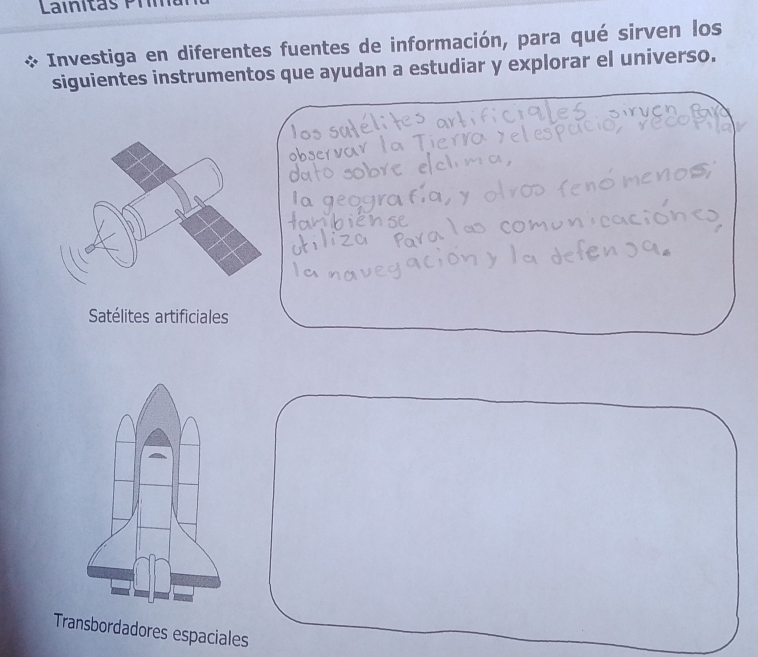 Lainitas Primaria
❖ Investiga en diferentes fuentes de información, para qué sirven los
siguientes instrumentos que ayudan a estudiar y explorar el universo.
los satélites artificiales sirven para
observar la Tierra y el espacio, recopilar
dato sobre elclima,
la geografía, y otros fenómenos,
tambiénse
utiliza para las comunicaciónes,
la navegación y la defensa.
Satélites artificiales
Transbordadores espaciales